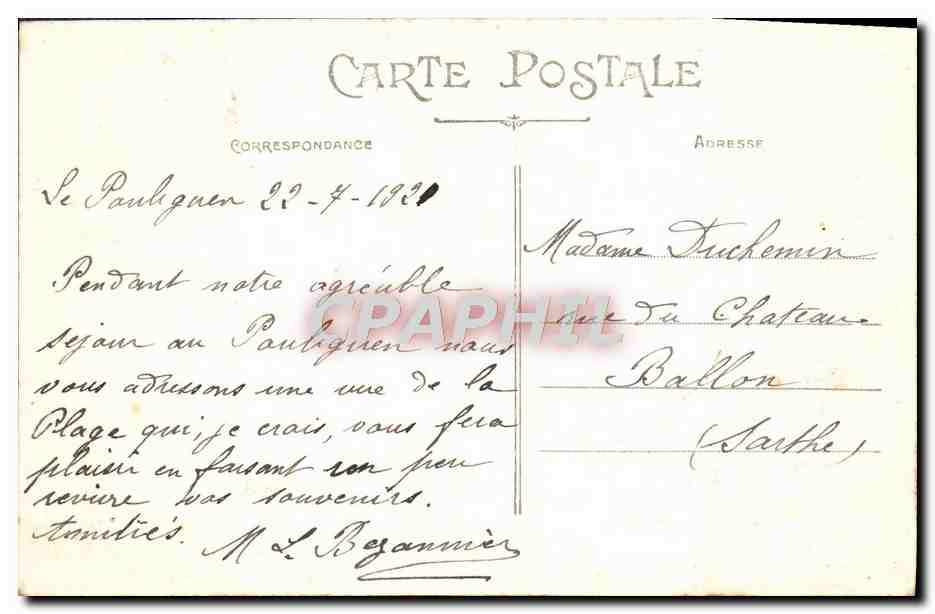 CARTE POSTALE
CORRESPONDANCE
ADRESSE
Le Pouliguen 22-7-1921
Pendant notre agréable
séjour au Pouliguen nous
vous adressons une vue de la
Plage qui, je crois, vous fera
plaisir en faisant un peu
revivre vos souvenirs.
Amitiés.
M L. Bezannier
Madame Duchemin
rue du Chateau
Ballon
(Sarthe)
CPAPHIL